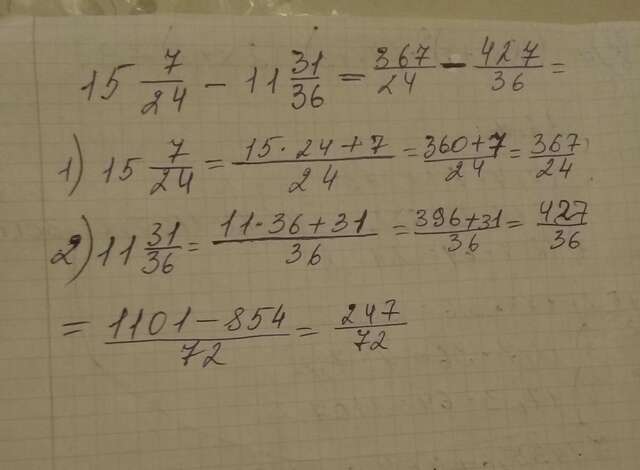 15 7/24 - 11 31/36 = 367/24 - 427/36 =
1) 15 7/24 = (15·24+7)/24 = (360+7)/24 = 367/24
2) 11 31/36 = (11·36+31)/36 = (396+31)/36 = 427/36
= (1101-854)/72 = 247/72